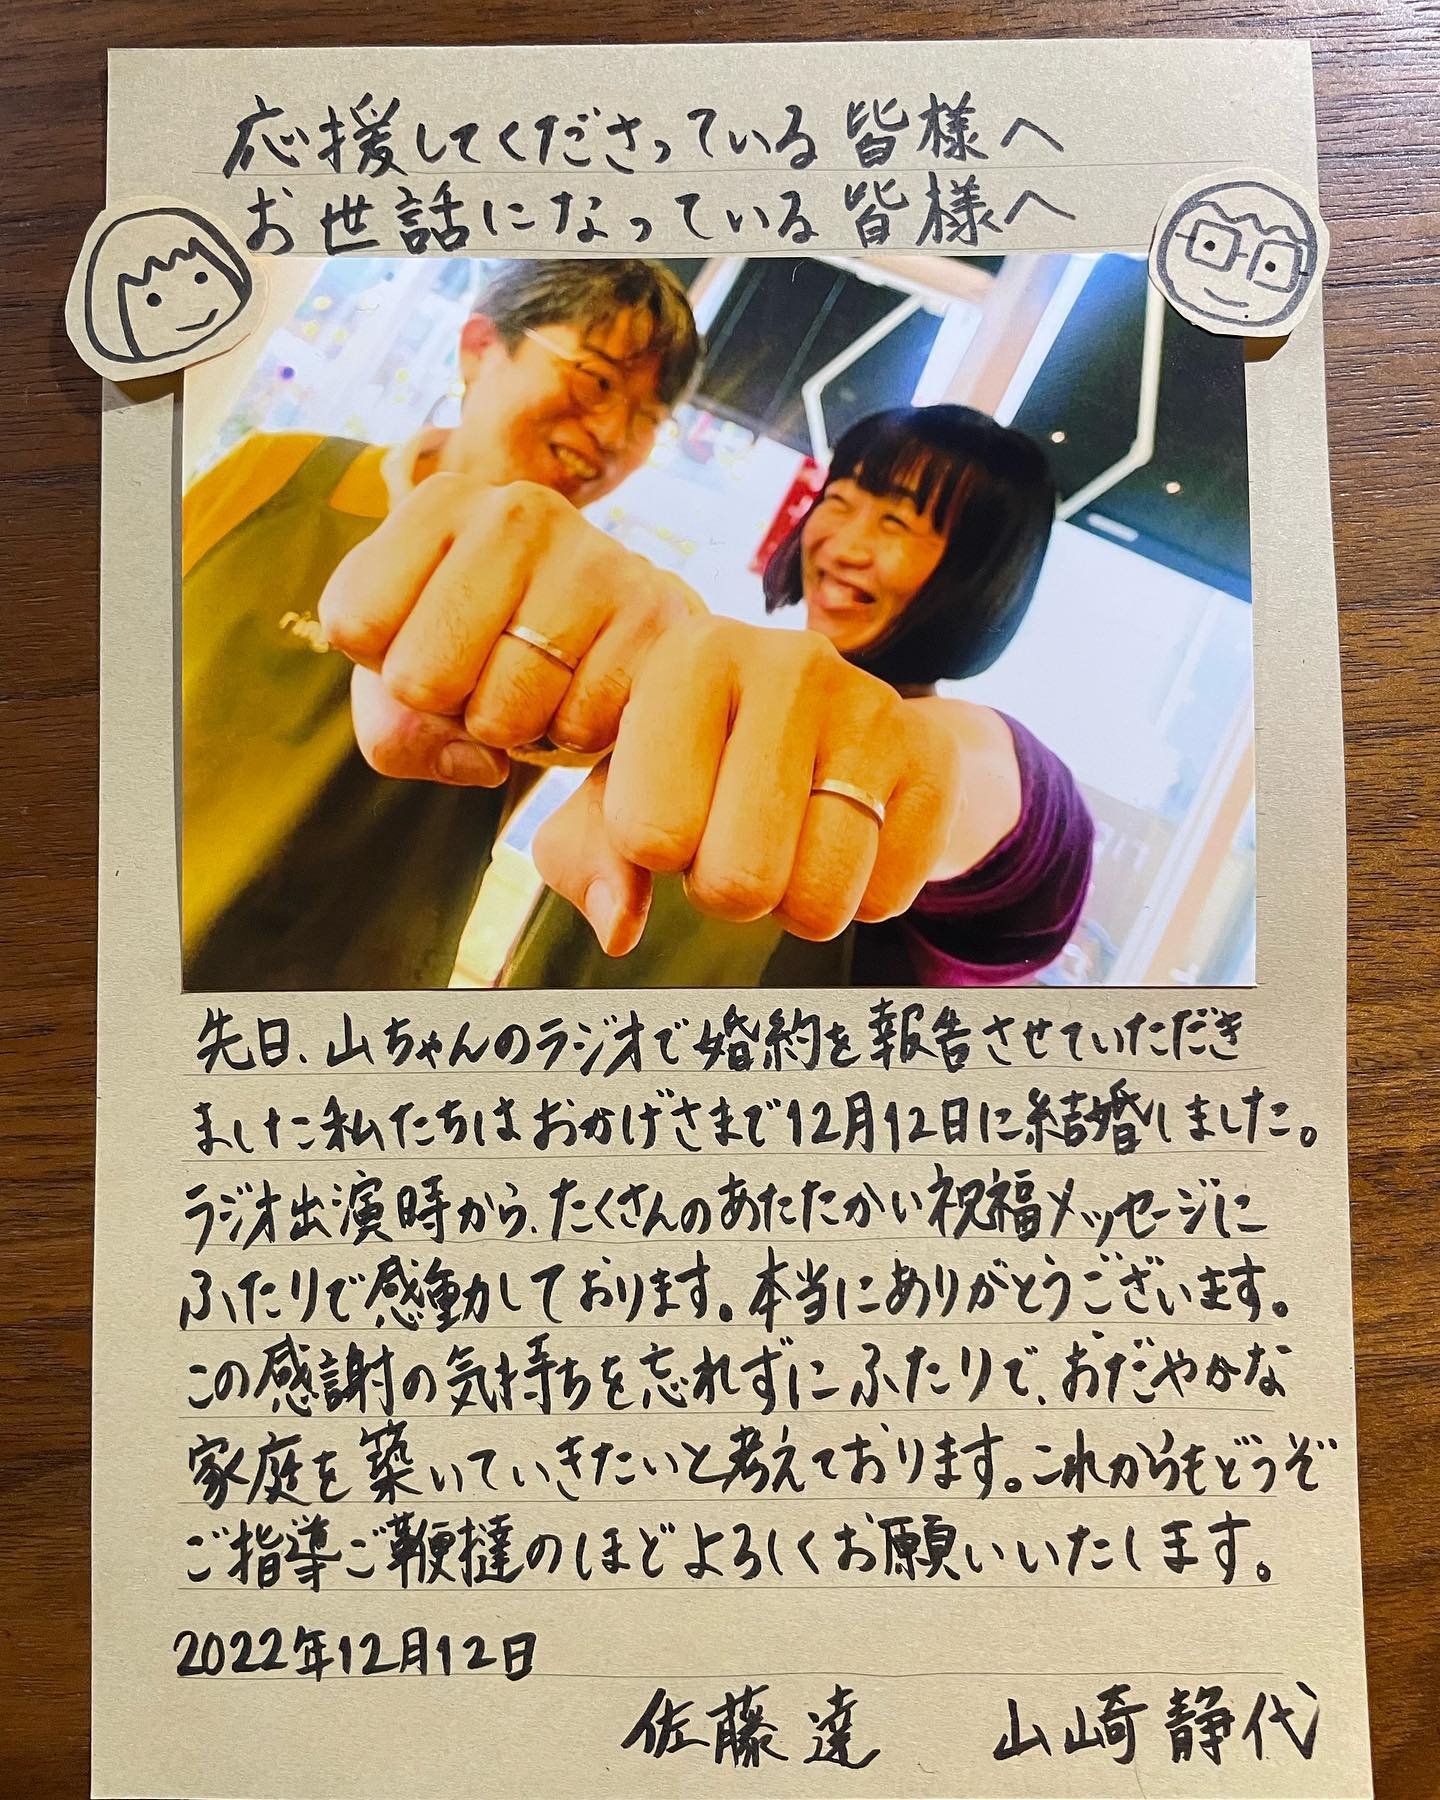 応援してくださっている皆様へ
お世話になっている皆様へ
先日、山ちゃんのラジオで婚約を報告させていただき
ました私たちはおかげさまで12月12日に結婚しました。
ラジオ出演時から、たくさんのあたたかい祝福メッセージに
ふたりで感動しております。本当にありがとうございます。
この感謝の気持ちを忘れずにふたりで、おだやかな
家庭を築いていきたいと考えております。これからもどうぞ
ご指導ご鞭撻のほどよろしくお願いいたします。
2022年12月12日
佐藤達 山崎静代